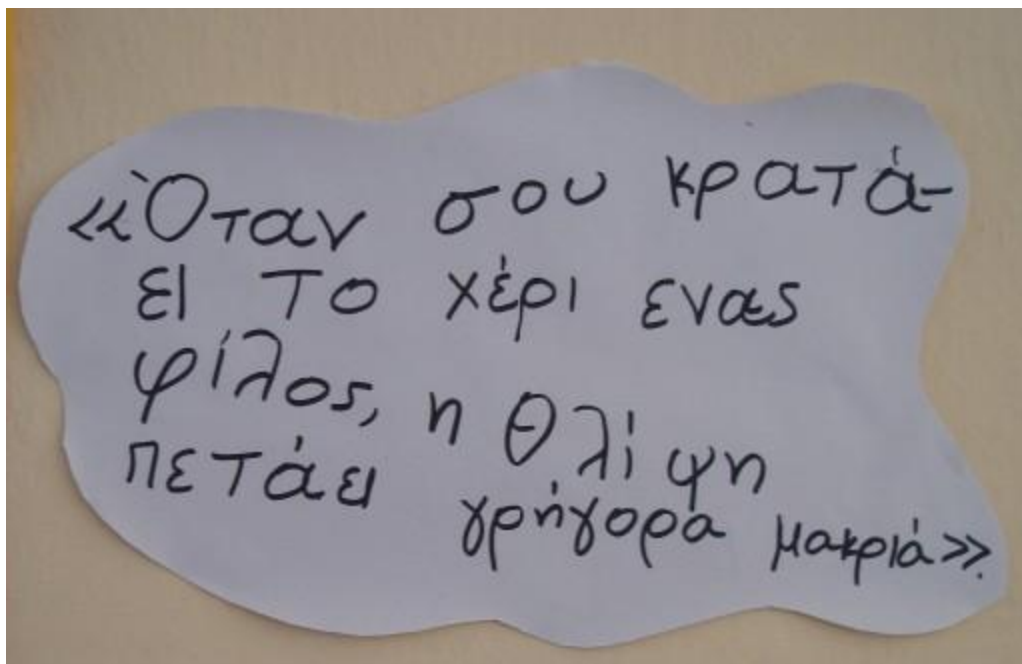 «Όταν σου κρατά-
ει το χέρι ενας
φίλος, η θλίψη
πετάει γρήγορα μακριά».